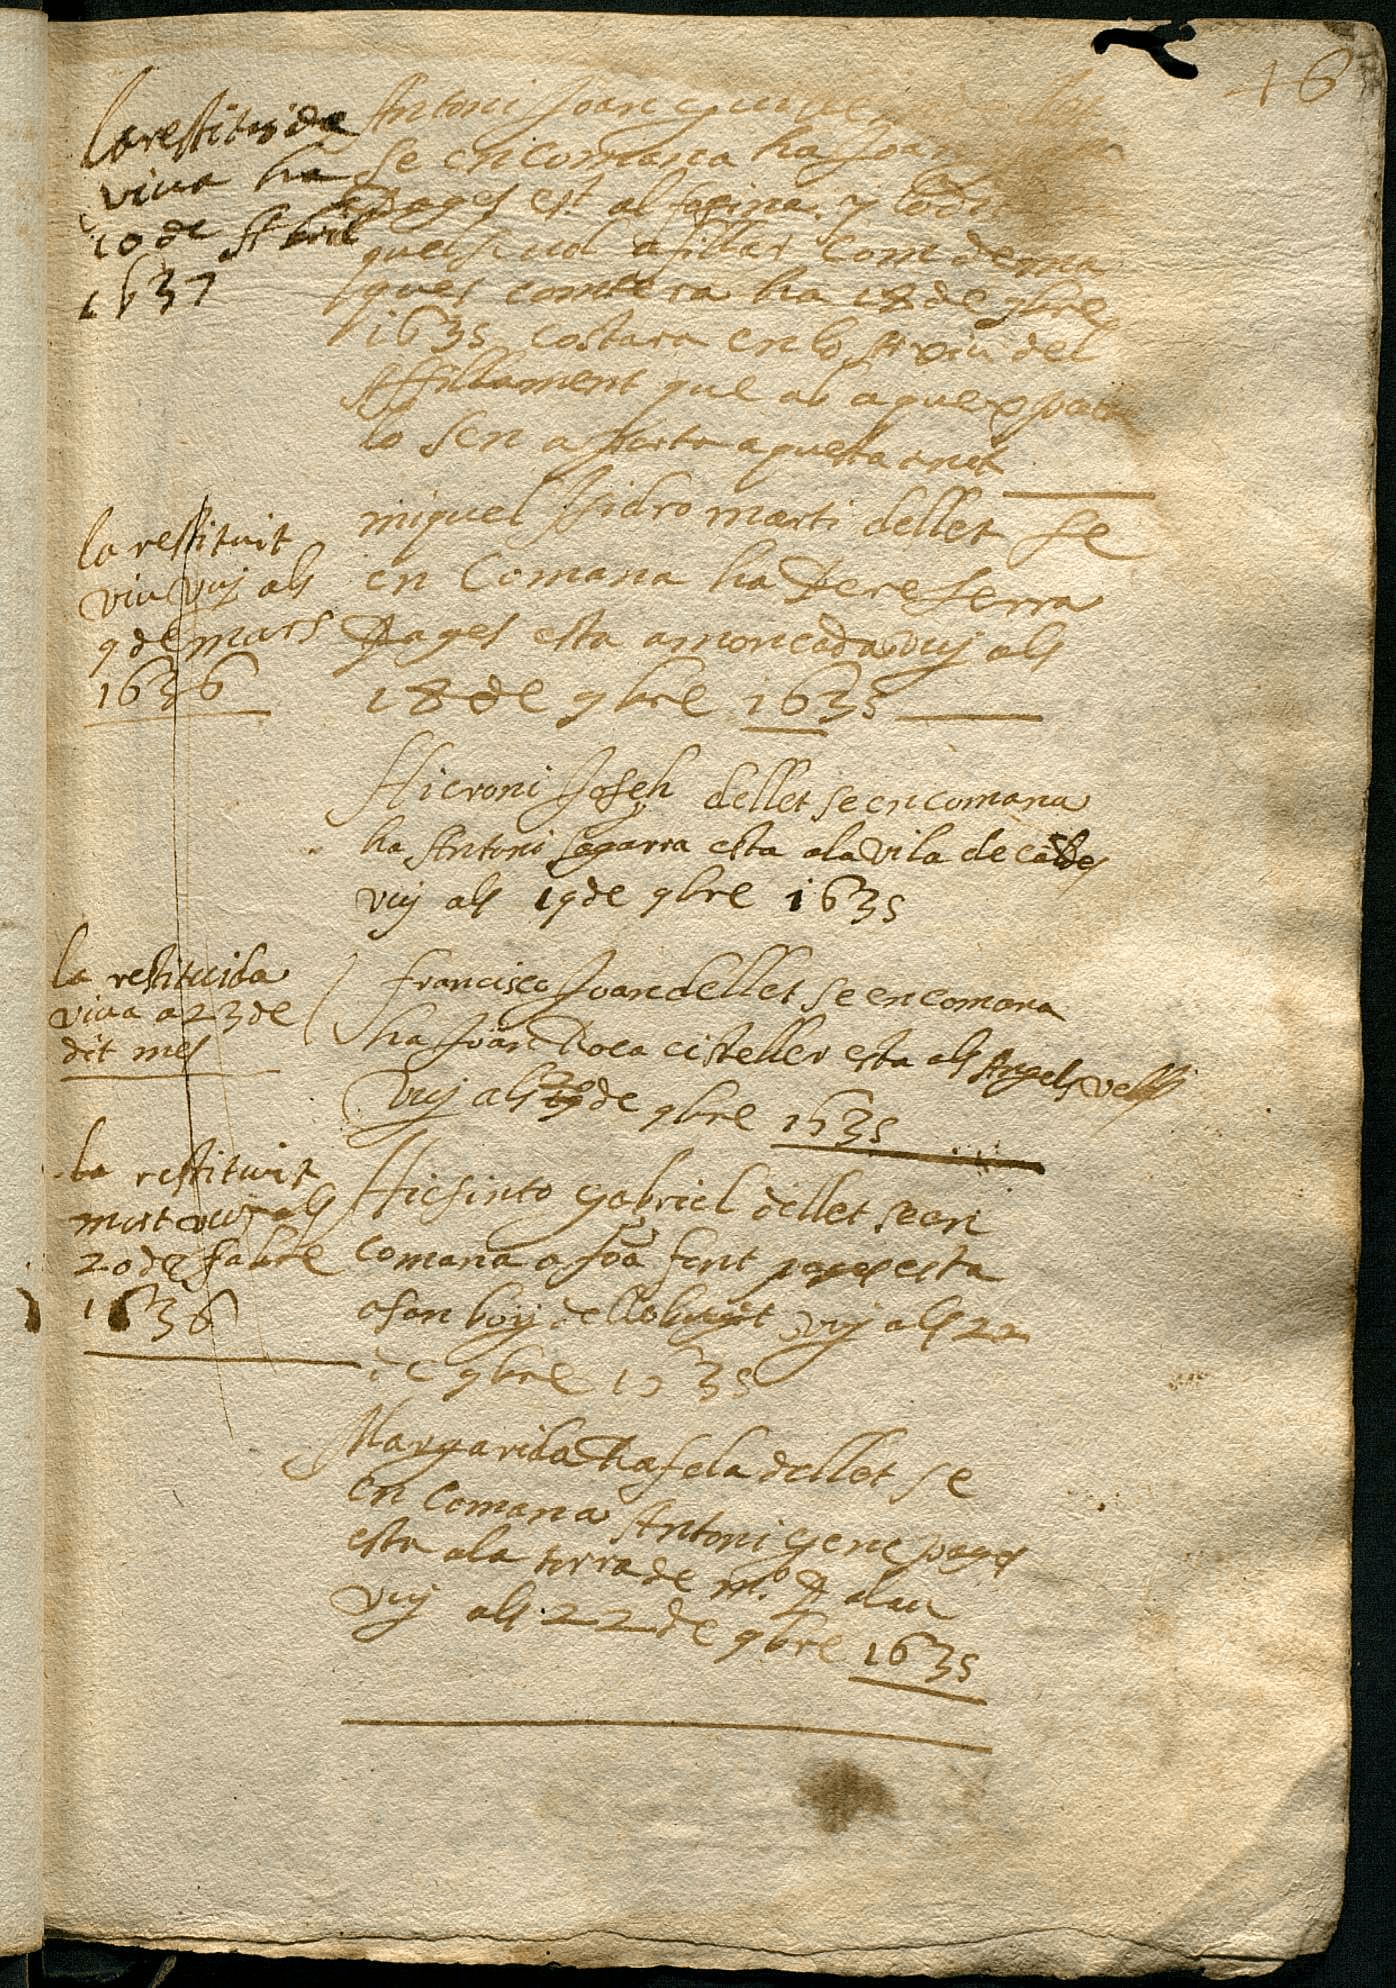 16
la restituida
viva ha
10 de Abril
1637
Antoni Joan
se encomana ha Joan
Pages est al
quel sĩ vol afillar com dema
ques contera ha 18 de 9bre
1635 costara en lo Arxiu del
Affillament que ab aquex pacte
lo sen a porta aquesta nit
la restituit
viu vuj als
9 de mars
1636
miquel Isidro marti dellet se
en Comana ha Pere serra
Pages esta a moncada vuj als
18 de 9bre 1635
Hieroni Joseh dellet se encomana
ha Antoni Segarra esta ala Vila de caldes
vuj als 19 de 9bre 1635
la restituida
viva a 23 de
dit mes
francisco Joan dellet se encomana
ha Juan Roca cisteller esta als Angels vells
Vuj als de 9bre 1635
la restituit
mort vuj als
20 de fabre
1636
Hiesinto Gabriel dellet se en
comana a Joã font pages esta
a san boy de llobregat vuj als 22
de 9bre 1635
Margarida Rafela dellet se
en comana Antoni Gene pages
esta ala torra de mº Palau
Vuj als 22 de 9bre 1635